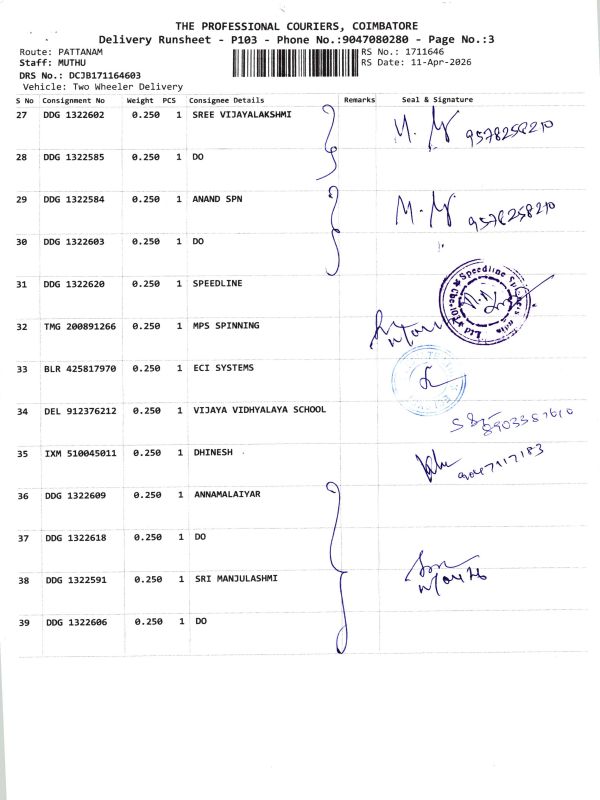 THE PROFESSIONAL COURIERS, COIMBATORE
Delivery Runsheet - P103 - Phone No.:9047080280 - Page No.:3
Route: PATTANAM RS No.: 1711646
Staff: MUTHU RS Date: 11-Apr-2026
DRS No.: DCJB171164603
Vehicle: Two Wheeler Delivery
S No Consignment No Weight PCS Consignee Details Remarks Seal & Signature
27 DDG 1322602 0.250 1 SREE VIJAYALAKSHMI 9578258210
28 DDG 1322585 0.250 1 DO
29 DDG 1322584 0.250 1 ANAND SPN 9578258210
30 DDG 1322603 0.250 1 DO
31 DDG 1322620 0.250 1 SPEEDLINE Speedline
32 TMG 200891266 0.250 1 MPS SPINNING
33 BLR 425817970 0.250 1 ECI SYSTEMS
34 DEL 912376212 0.250 1 VIJAYA VIDHYALAYA SCHOOL
35 IXM 510045011 0.250 1 DHINESH 9047117183
36 DDG 1322609 0.250 1 ANNAMALAIYAR
37 DDG 1322618 0.250 1 DO
38 DDG 1322591 0.250 1 SRI MANJULASHMI
39 DDG 1322606 0.250 1 DO